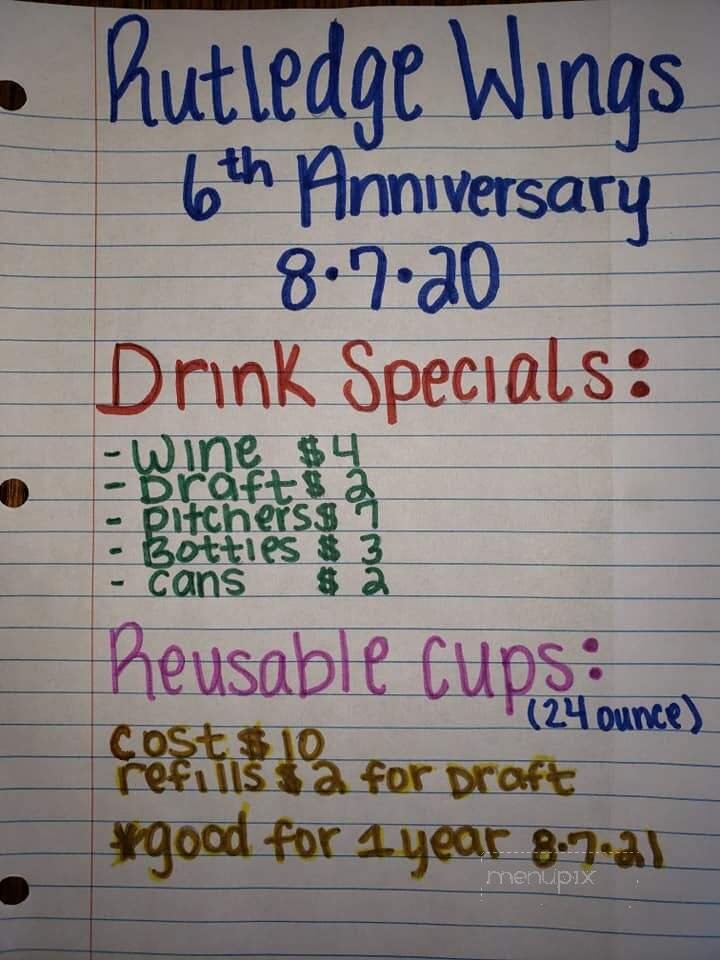 Rutledge Wings
6th Anniversary
8.7.20
Drink Specials:
- Wine $4
- Draft $ 2
- Pitchers $ 7
- Bottles $ 3
- Cans $ 2
Reusable Cups:
(24 ounce)
Cost $ 10
refills $ 2 for Draft
*good for 1 year 8.7.21
menupix